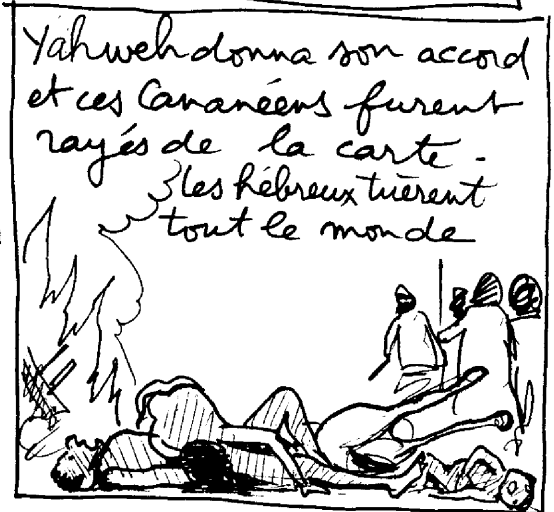 Yahweh donna son accord
et ces Cananéens furent
rayés de la carte.
les hébreux tuèrent
tout le monde